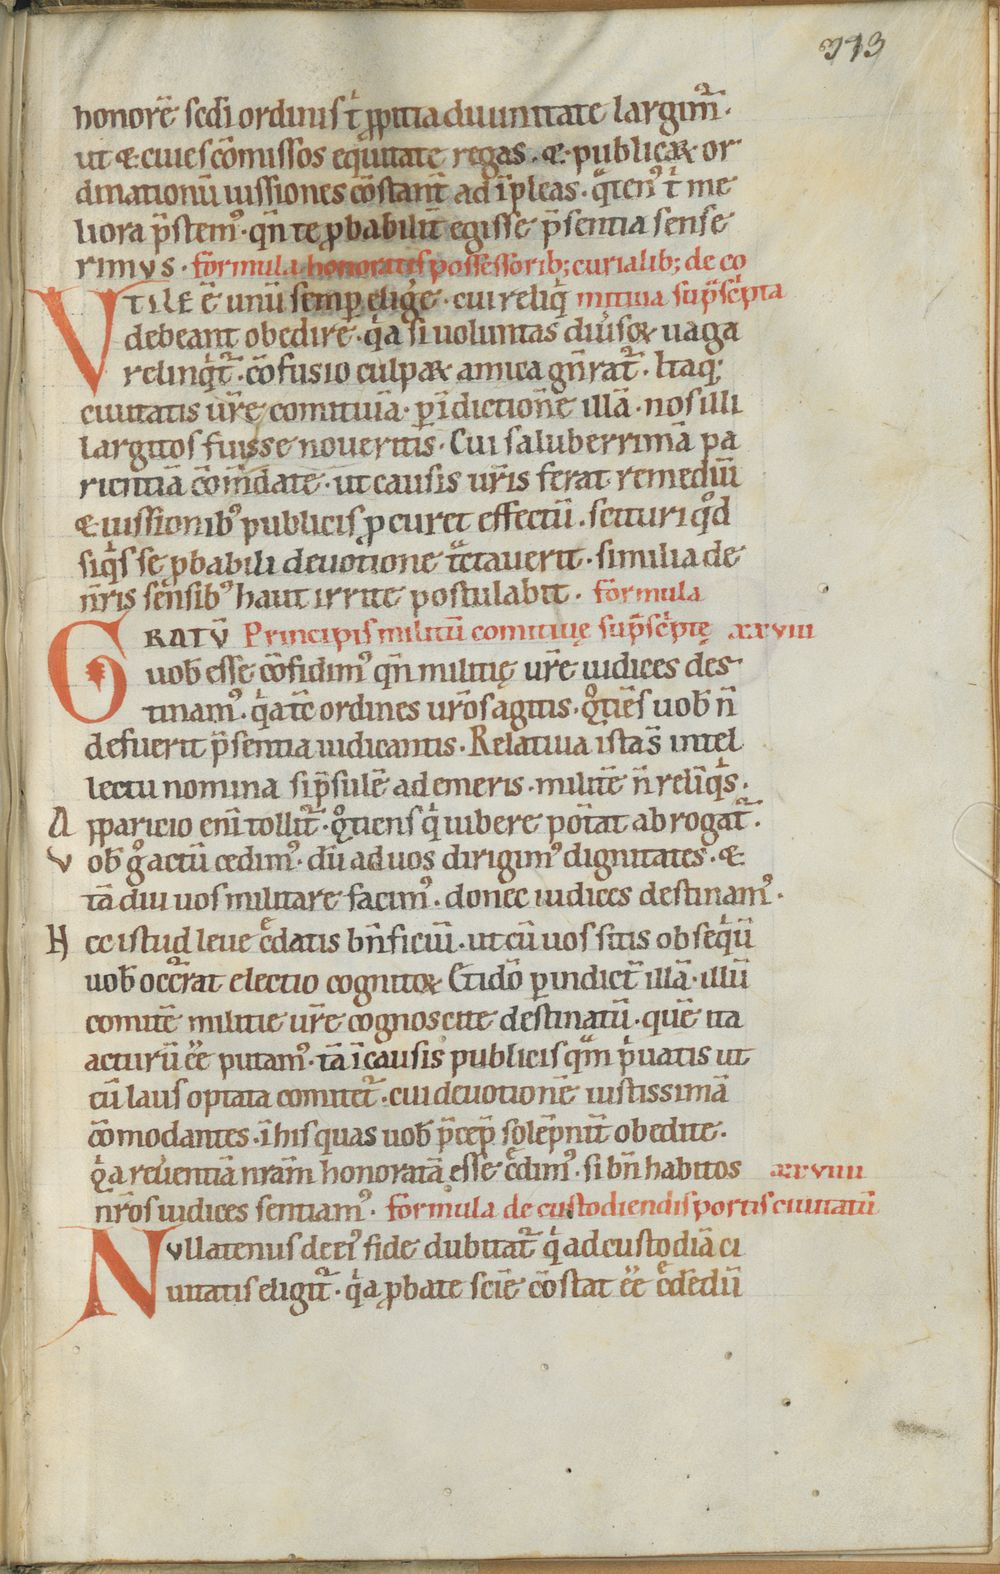 313
honorē sedi ordinis t̄ p̄pitia diuinitate largim̄.
ut & ciues cōmissos eq̄uitate regas. & publicaꝝ or
dinationū iussiones cōstant̄ ad īpleas. q̄tenꝰ t̄ me
liora p̄stemꝰ. qn̄ te ꝓbabilit̄ egisse p̄sentia sense
rimus. formula honoratis possessorib; curialib; de co
VTILE ē unū semꝑ eligē. cui reliq̄ mitiua sup̄sc̄pta
debeant obedire. q̄a si uoluntas diūsoꝝ uaga
relinq̄t̄. cōfusio culpaꝝ amica gn̄rat̄. Itaq;
ciuitatis ur̄e comitiuā. ꝑ īdictionē illā. nos illi
largitos fuisse noueritis. Cui saluberrimā pa
rientiā cōm̄date. ut causis ur̄is ferat remediū
& iussionibꝰ publicis ꝓcuret effectū. scituri qd̄
siq̄s se ꝓbabili deuotione tc̄tauerit. similia de
nr̄is sēnsibꝰ haut irrite postulabit. formula
GRATŪ Principis militū comitiuę sup̄sc̄ptę xxviii
uob̄ esse cōfidimꝰ qn̄ militię ur̄e iudices des
tinamꝰ. q̄a tc̄ ordines ur̄os agitis. q̄tiēs uob̄ n̄
defuerit p̄sentia iudicantis. Relatiua ista s̄ intel
lectu nomina si p̄sulē ademeris. militē n̄ relīq̄s.
Apparicio enī tollit̄. q̄tiens q̄ iubere pōtat abrogat̄.
Vob̄ g̊ actū cedimꝰ. dū ad uos dirigimꝰ dignitates. &
tā diu uos militare facimꝰ. donec iudices destinamꝰ.
Hec istud leue c̄datis bn̄ficiū. ut cū uos sitis obseq̄ū
uob̄ occ̄rat electio cognitoꝝ Et idō ꝑ indict̄ illā. illū
comitē militie ur̄e cognoscite destinatū. quē ita
acturū ēē putamꝰ. tā ī causis publicis qm̄ p̄uatis ut
cū laus optata comitet̄. cui deuotionē iustissimā
cōmodantes. ī his quas uob̄ p̄cep̄ solēpnit̄ obedite.
q̄a reūentiā nr̄am honoratā esse c̄dimꝰ. si bn̄ habitos xxviiii
nr̄os iudices sentiamꝰ. formula de custodiendis portis ciuitatū
Nullatenus de eiꝰ fide dubitat̄ q̄ ad custodiā ci
uitatis eligit̄. q̄a ꝓbate sciē cōstat ēē c̄dēdū